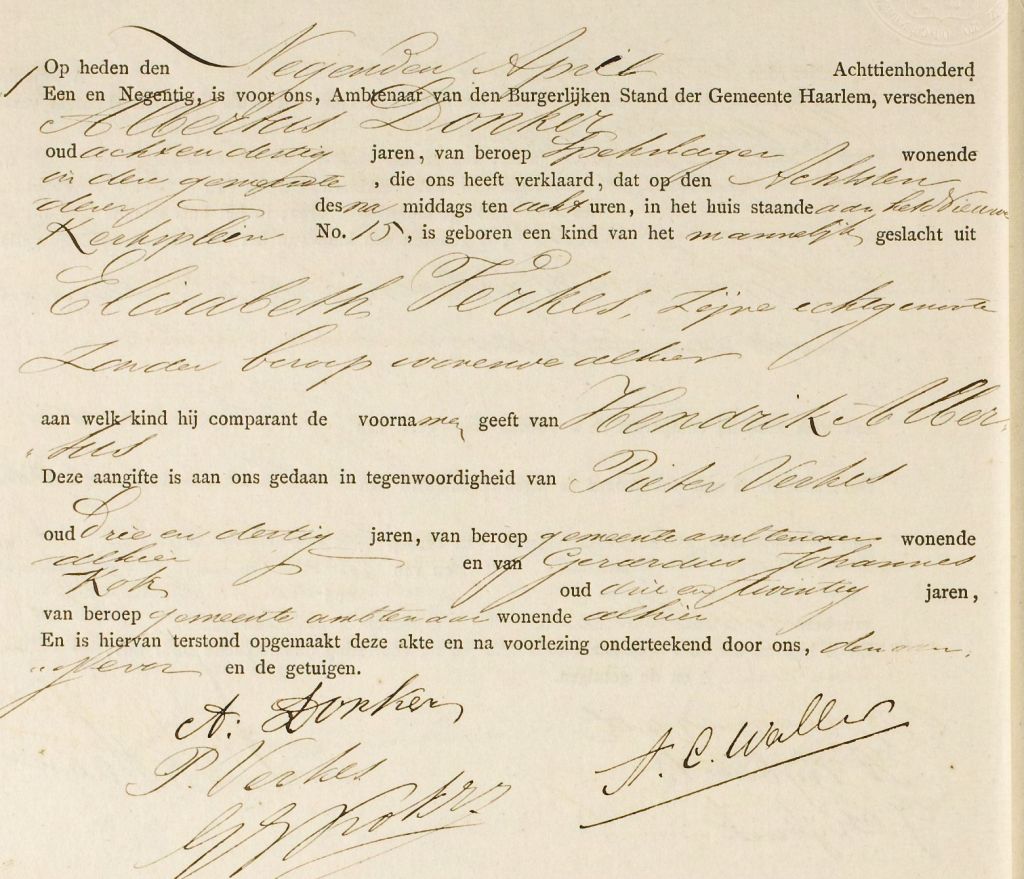 Op heden den Negenden April Achttienhonderd
Een en Negentig, is voor ons, Ambtenaar van den Burgerlijken Stand der Gemeente Haarlem, verschenen
Albertus Donker
oud acht en dertig jaren, van beroep Spekslager wonende
in den gemeente , die ons heeft verklaard, dat op den Achtsten
dezer des na middags ten acht uren, in het huis staande aan het Nieuwe
Kerksplein No. 15, is geboren een kind van het mannelijk geslacht uit
Elisabeth Verkes, zijne echtgenoote
zonder beroep wonende alhier
aan welk kind hij comparant de voornamen geeft van Hendrik Alber-
tus
Deze aangifte is aan ons gedaan in tegenwoordigheid van Pieter Verkes
oud drie en dertig jaren, van beroep gemeente ambtenaar wonende
alhier en van Gerardus Johannes
Kok oud drie en twintig jaren,
van beroep gemeente ambtenaar wonende alhier
En is hiervan terstond opgemaakt deze akte en na voorlezing onderteekend door ons, den aan-
gever en de getuigen.
A: Donker
P. Verkes
A. C. Waller
G J Kok